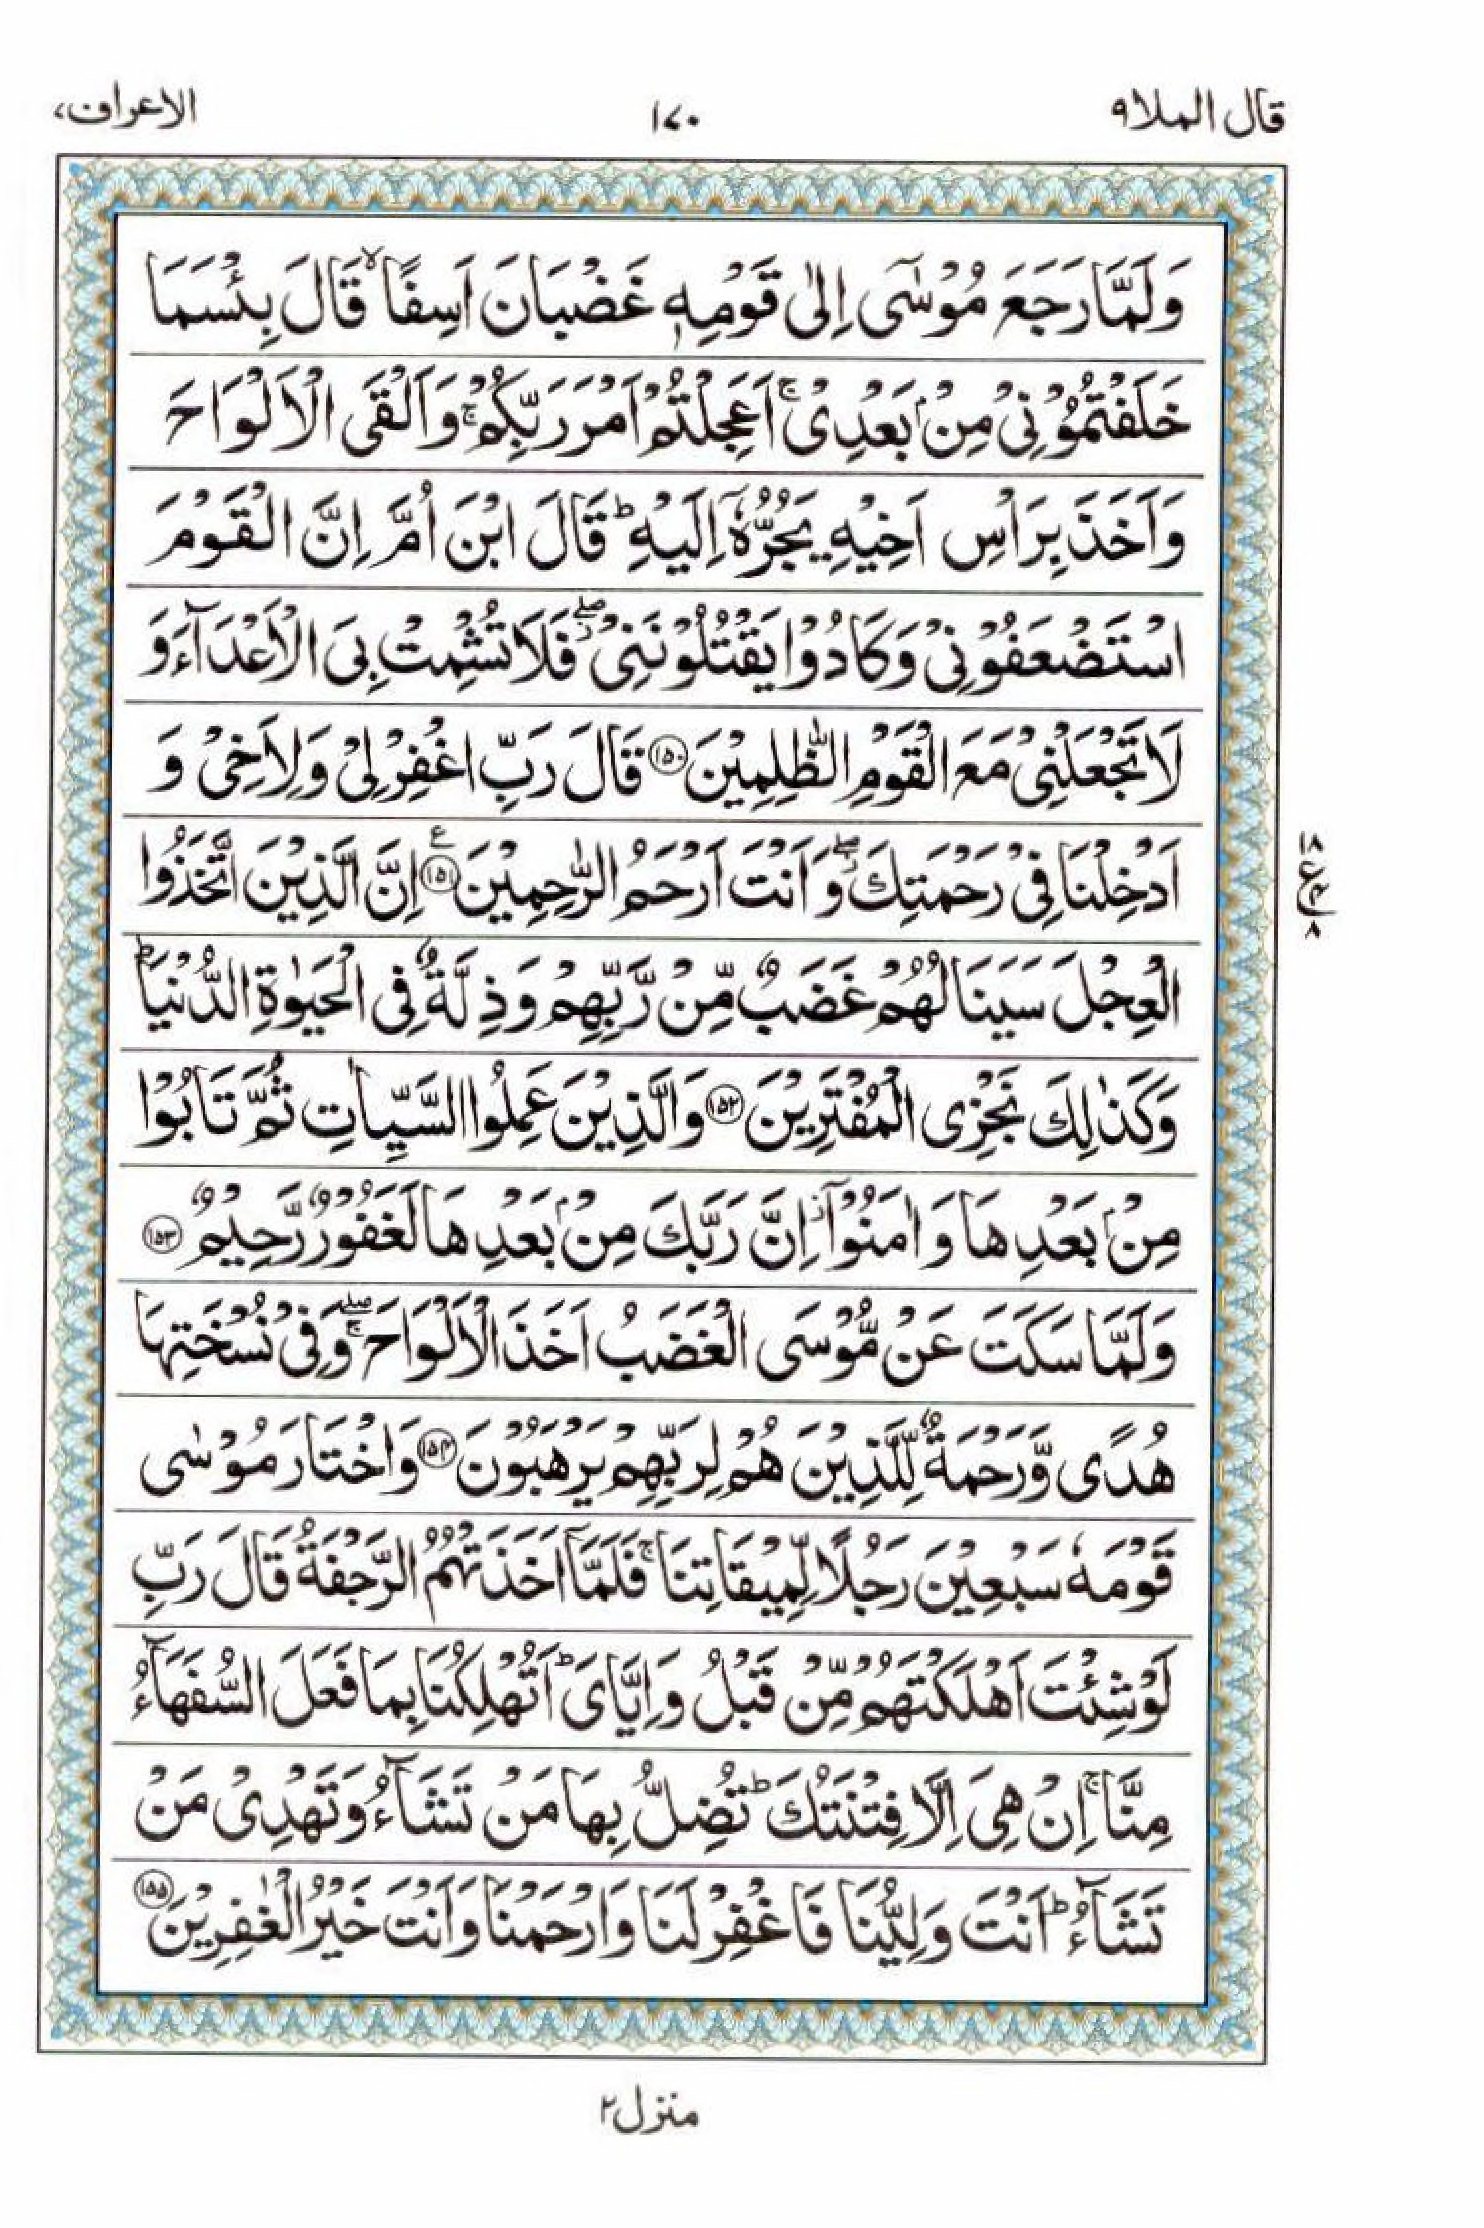 قال الملا۹ ۱۷۰ الاعراف۷
وَلَمَّا رَجَعَ مُوْسٰۤى اِلٰى قَوْمِهٖ غَضْبَانَ اَسِفًا ۙ قَالَ بِئْسَمَا
خَلَفْتُمُوْنِیْ مِنْۢ بَعْدِیْ ۚ اَعَجِلْتُمْ اَمْرَ رَبِّكُمْ ۚ وَاَلْقَى الْاَلْوَاحَ
وَاَخَذَ بِرَاْسِ اَخِیْهِ یَجُرُّهٗۤ اِلَیْهِ ؕ قَالَ ابْنَ اُمَّ اِنَّ الْقَوْمَ
اسْتَضْعَفُوْنِیْ وَكَادُوْا یَقْتُلُوْنَنِیْ ۖ ز فَلَا تُشْمِتْ بِیَ الْاَعْدَآءَ وَ
لَا تَجْعَلْنِیْ مَعَ الْقَوْمِ الظّٰلِمِیْنَ ۱۵۰ قَالَ رَبِّ اغْفِرْ لِیْ وَلِاَخِیْ وَ
اَدْخِلْنَا فِیْ رَحْمَتِكَ ۖ ز وَاَنْتَ اَرْحَمُ الرّٰحِمِیْنَ ۱۵۱ ع اِنَّ الَّذِیْنَ اتَّخَذُوا
۱۸ ع ۴ ۸
الْعِجْلَ سَیَنَالُهُمْ غَضَبٌ مِّنْ رَّبِّهِمْ وَذِلَّةٌ فِی الْحَیٰوةِ الدُّنْیَا ؕ
وَكَذٰلِكَ نَجْزِی الْمُفْتَرِیْنَ ۱۵۲ وَالَّذِیْنَ عَمِلُوا السَّیِّاٰتِ ثُمَّ تَابُوْا
مِنْۢ بَعْدِهَا وَاٰمَنُوْۤا ز اِنَّ رَبَّكَ مِنْۢ بَعْدِهَا لَغَفُوْرٌ رَّحِیْمٌ ۱۵۳
وَلَمَّا سَكَتَ عَنْ مُّوْسَى الْغَضَبُ اَخَذَ الْاَلْوَاحَ ۖۚ وَفِیْ نُسْخَتِهَا
هُدًى وَّرَحْمَةٌ لِّلَّذِیْنَ هُمْ لِرَبِّهِمْ یَرْهَبُوْنَ ۱۵۴ وَاخْتَارَ مُوْسٰى
قَوْمَهٗ سَبْعِیْنَ رَجُلًا لِّمِیْقَاتِنَا ۚ فَلَمَّاۤ اَخَذَتْهُمُ الرَّجْفَةُ قَالَ رَبِّ
لَوْ شِئْتَ اَهْلَكْتَهُمْ مِّنْ قَبْلُ وَاِیَّایَ ؕ اَتُهْلِكُنَا بِمَا فَعَلَ السُّفَهَآءُ
مِنَّا ۚ اِنْ هِیَ اِلَّا فِتْنَتُكَ ؕ تُضِلُّ بِهَا مَنْ تَشَآءُ وَتَهْدِیْ مَنْ
تَشَآءُ ؕ اَنْتَ وَلِیُّنَا فَاغْفِرْ لَنَا وَارْحَمْنَا وَاَنْتَ خَیْرُ الْغٰفِرِیْنَ ۱۵۵
منزل۲